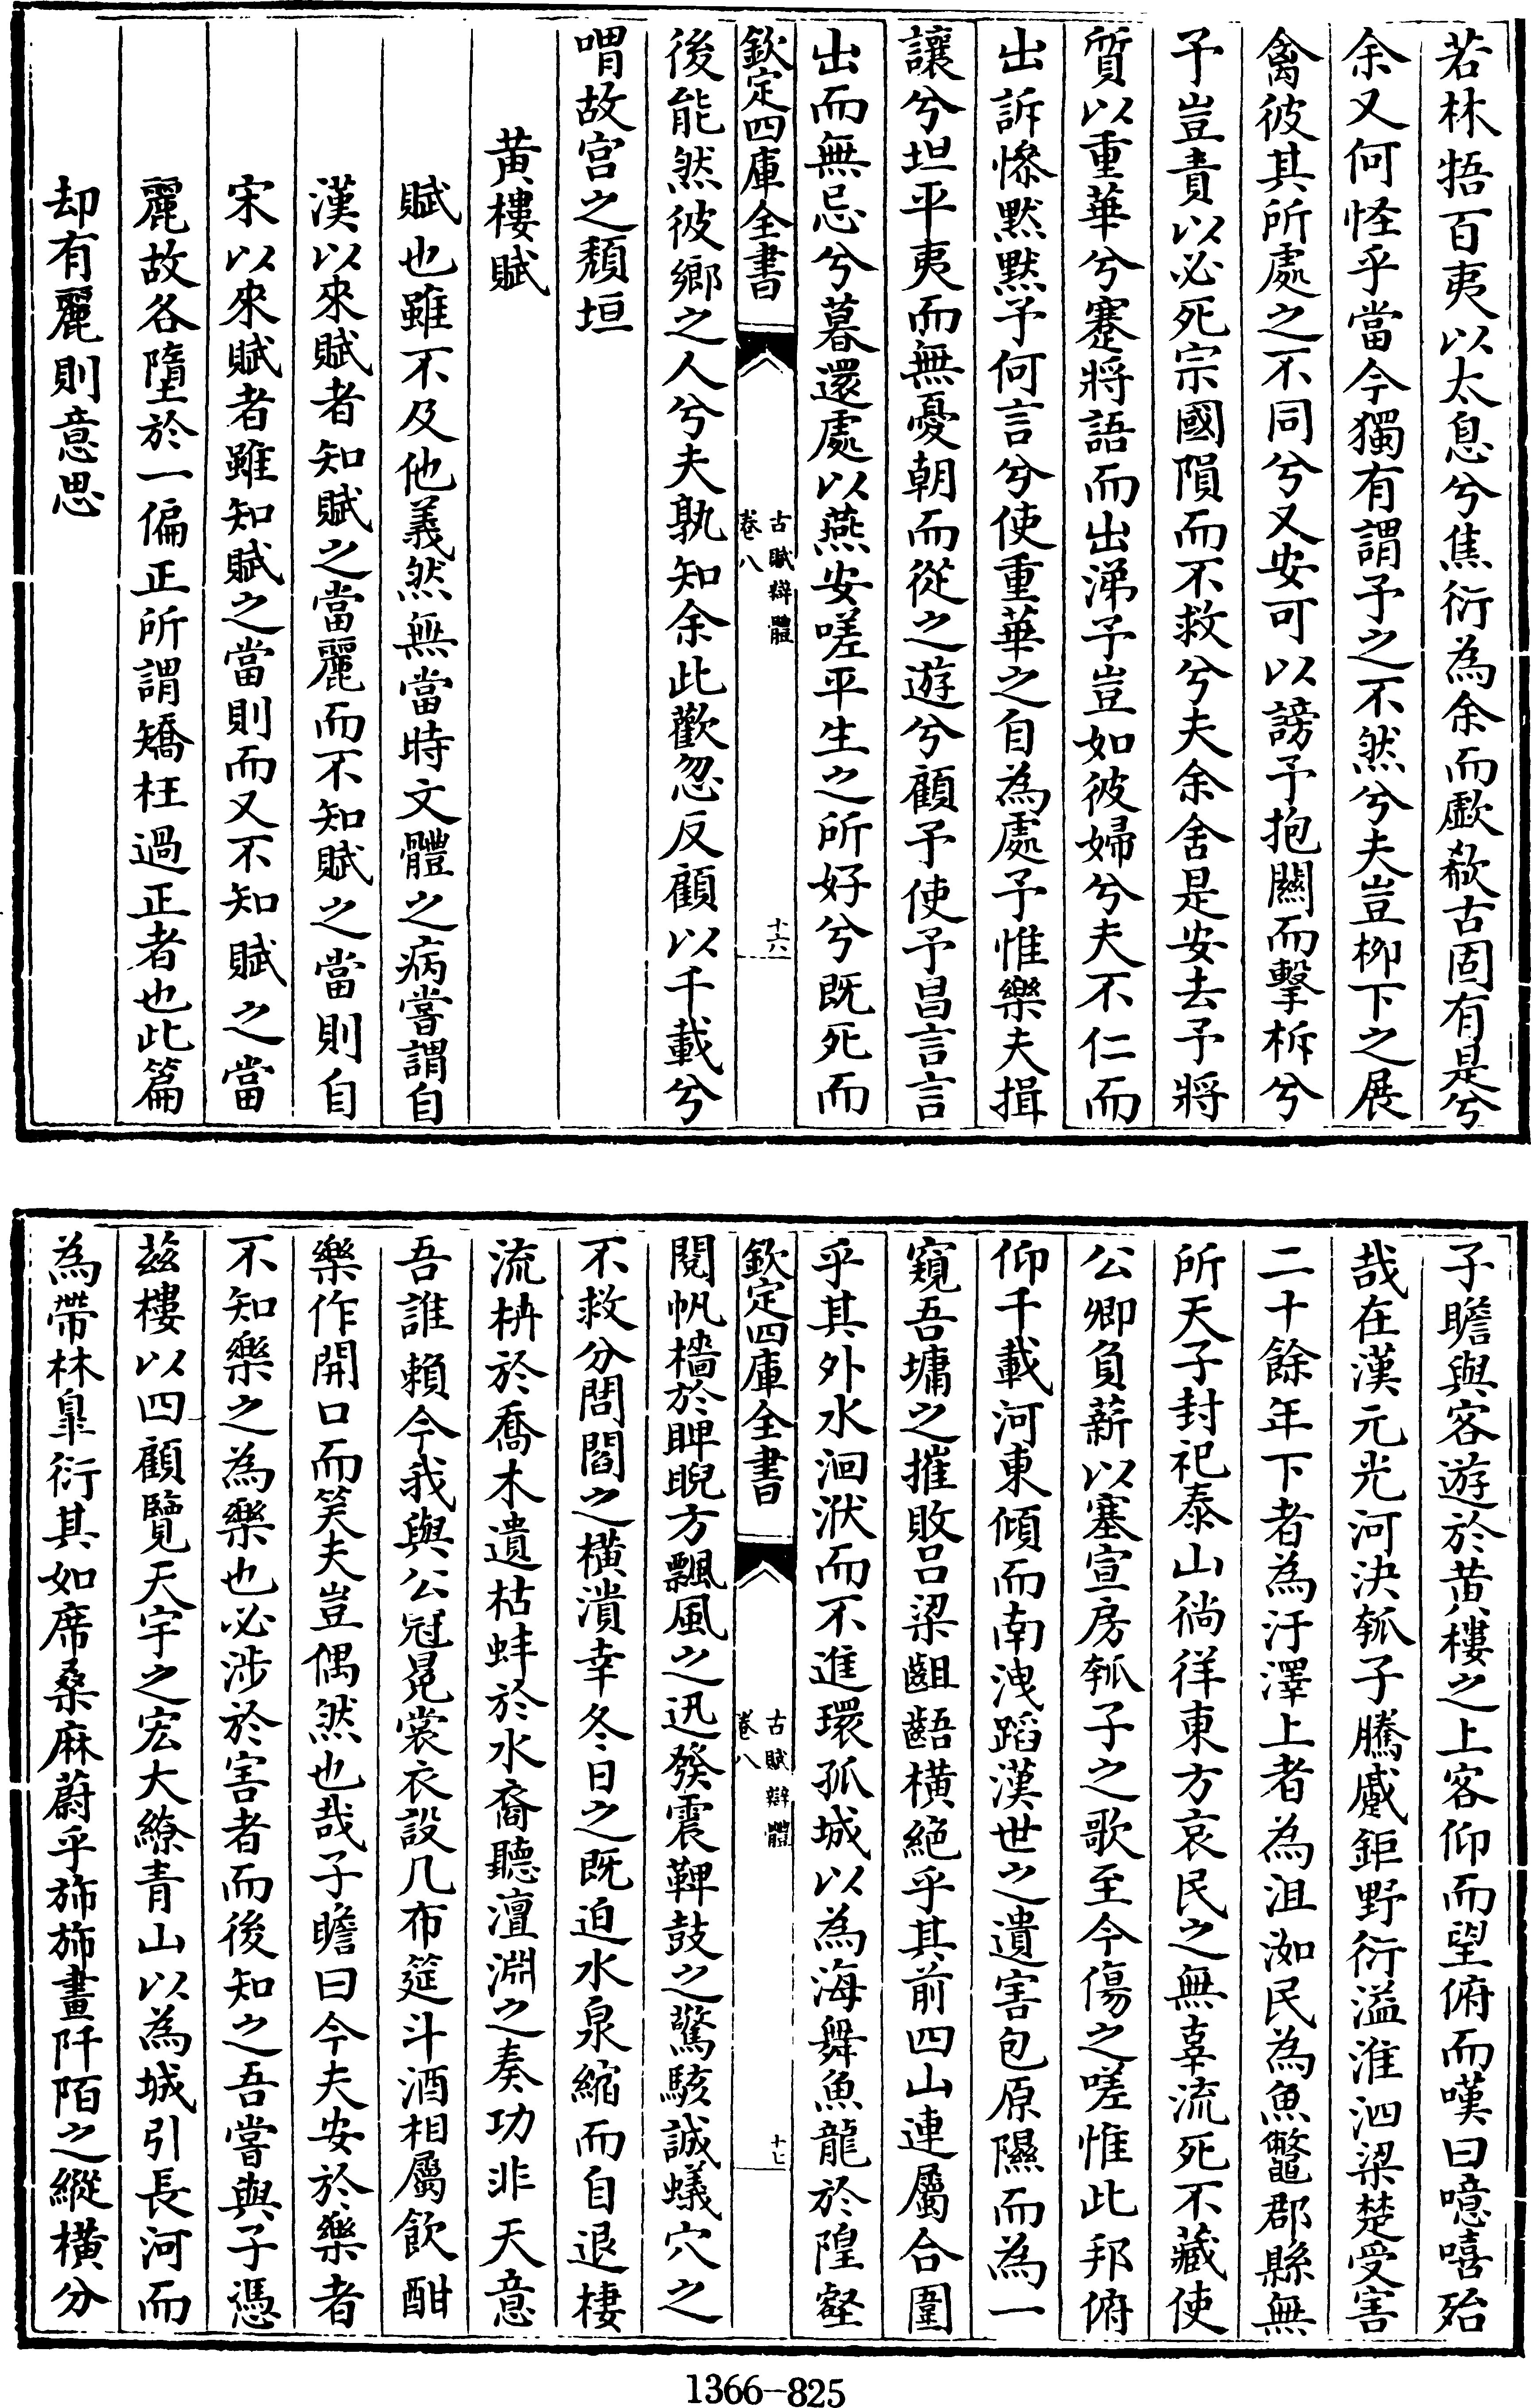 若林牾百夷以太息兮焦衍為余而歔欷古固有是兮
余又何怪乎當今獨有謂予之不然兮夫豈桞下之展
禽彼其所處之不同兮又安可以謗予抱關而擊柝兮
予豈責以必死宗國隕而不救兮夫余舍是安去予將
質以重華兮蹇將語而出涕予豈如彼婦兮夫不仁而
出訴慘黙黙予何言兮使重華之自為處予惟樂夫揖
讓兮坦平夷而無憂朝而從之遊兮顧予使予昌言言
出而無忌兮暮還處以燕安嗟平生之所好兮兮既死而
欽定四庫全書
古賦辯體
卷八
十六
後能然彼鄉之人兮夫孰知余此歡忽反顧以千載兮
喟故宫之頽垣
黄樓賦
賦也雖不及他義然無當時文體之病嘗謂自
漢以來賦者知賦之當麗而不知賦之當則自
宋以來賦者雖知賦之當則而又不知賦之當
麗故各墮於一偏正所謂矯枉過正者也此篇
却有麗則意思
子瞻與客遊於黄樓之上客仰而望俯而嘆曰噫嘻殆
哉在漢元光河決瓠子騰蹙鉅野衍溢淮泗梁楚受害
二十餘年下者為汙澤上者為沮洳民為魚鼈郡縣無
所天子封祀泰山徜徉東方哀民之無辜流死不藏使
公卿負薪以塞宣房瓠子之歌至今傷之嗟惟此邦俯
仰千載河東傾而南洩蹈漢世之遺害包原隰而為一
窺吾墉之摧敗吕梁齟齬横絶乎其前四山連屬合圍
乎其外水洄洑而不進環孤城以為海舞魚龍於隍壑
欽定四庫全書
古賦辯體
卷八
十七
閱帆檣於睥睨方飄風之迅發震鞞鼓之驚駭誠蟻穴之
不救分閭閻之横潰幸冬日之既迫水泉縮而自退棲
流枿於喬木遺枯蚌於水裔聽澶淵之奏功非天意
吾誰賴今我與公冠冕裳衣設几布筵斗酒相屬飲酣
樂作開口而笑夫豈偶然也哉子瞻曰今夫安於樂者
不知樂之為樂也必涉於害者而後知之吾嘗與子憑
茲樓以四顧覽天宇之宏大繚青山以為城引長河而
為帶林臯衍其如席桑麻蔚乎斾斾畫阡陌之縱横分
1366—825